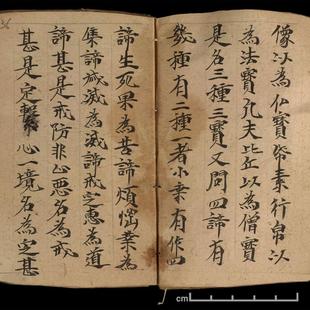 像以為仏寶帋素行帛以
為法寶凡夫比丘以為僧寶
是名三種三寶又問四諦有
幾種有二種一者小乗有作四
諦生死果為苦諦煩惱業為
集諦滅為滅諦戒定惠為道
諦甚是戒防非止惡名為戒
甚是定 心一境名為定甚
cm